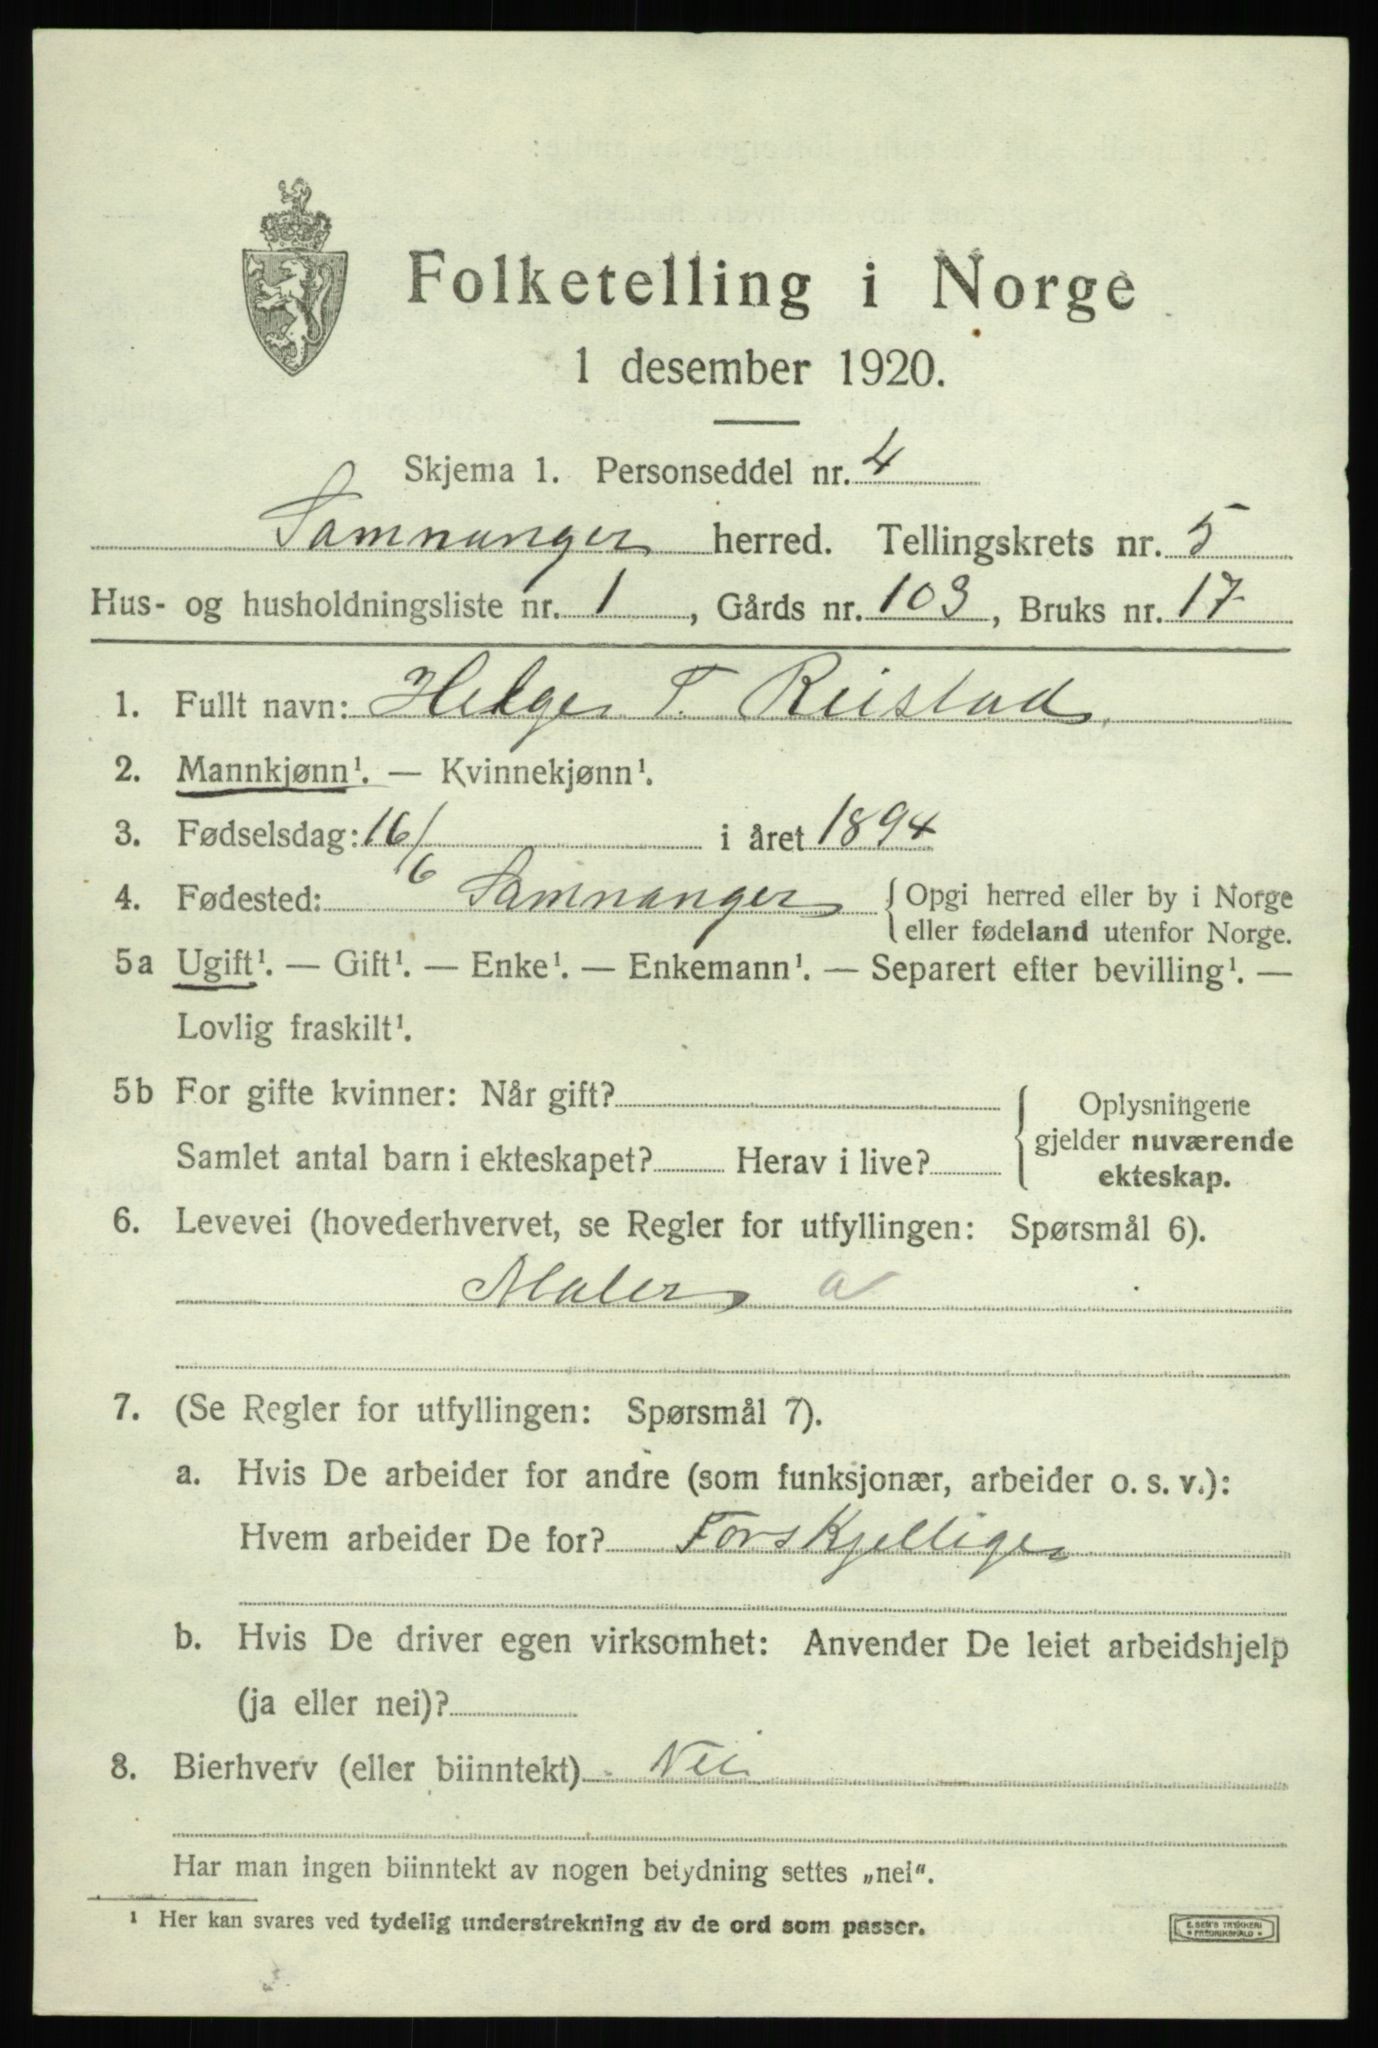 Folketelling i Norge
1 desember 1920.
Skjema 1. Personseddel nr. 4
Samnanger herred. Tellingskrets nr. 5
Hus- og husholdningsliste nr. 1, Gårds nr. 103, Bruks nr. 17
1. Fullt navn: Helge T. Reistad.
2. Mannkjønn¹. — Kvinnekjønn¹.
3. Fødselsdag: 16/6 i året 1894
4. Fødested: Samnanger { Opgi herred eller by i Norge
eller fødeland utenfor Norge.
5a Ugift¹. — Gift¹. — Enke¹. — Enkemann¹. — Separert efter bevilling¹. —
Lovlig fraskilt¹.
5b For gifte kvinner: Når gift?
Samlet antal barn i ekteskapet? Herav i live?
{ Oplysningene
gjelder nuværende
ekteskap.
6. Levevei (hovederhvervet, se Regler for utfyllingen: Spørsmål 6).
Maler a
7. (Se Regler for utfyllingen: Spørsmål 7).
a. Hvis De arbeider for andre (som funksjonær, arbeider o. s. v.):
Hvem arbeider De for? Forskjellige
b. Hvis De driver egen virksomhet: Anvender De leiet arbeidshjelp
(ja eller nei)?
8. Bierhverv (eller biinntekt) Nei
Har man ingen biinntekt av nogen betydning settes „nei“.
¹ Her kan svares ved tydelig understrekning av de ord som passer.
E. SEM'S TRYKKERI
* FREDRIKSHALD *